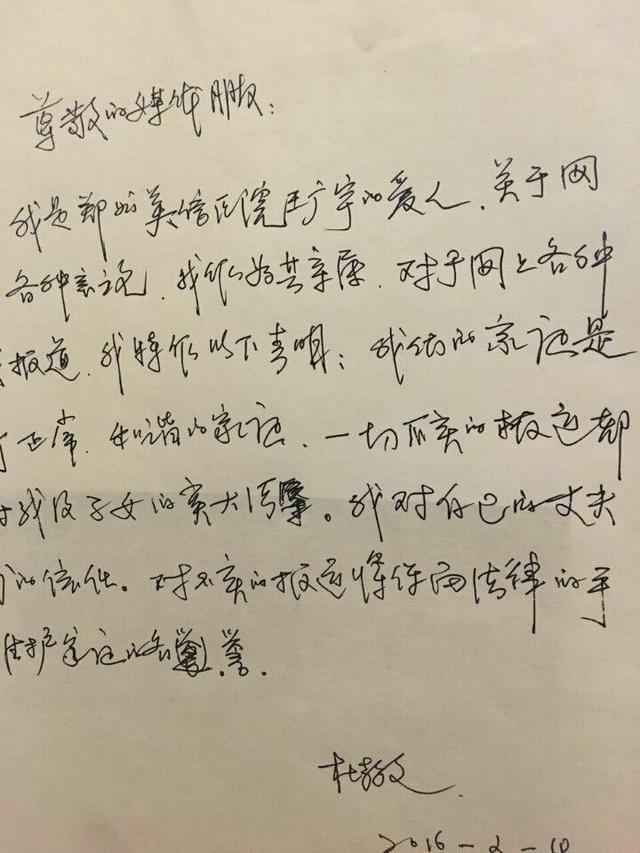 尊敬的媒体朋友：
我是郑州美信医院王广宇的爱人、关于网
各种言论、我作为其亲属、对于网上各种
报道、我特作以下声明：我们的家庭是
正常、和谐的家庭、一切不实的报道都
对我及子女的莫大污辱。我对自己的丈夫
的信任。对不实的报道将保留法律的手
维护家庭的名誉.
杜敬文.
2016-2-10